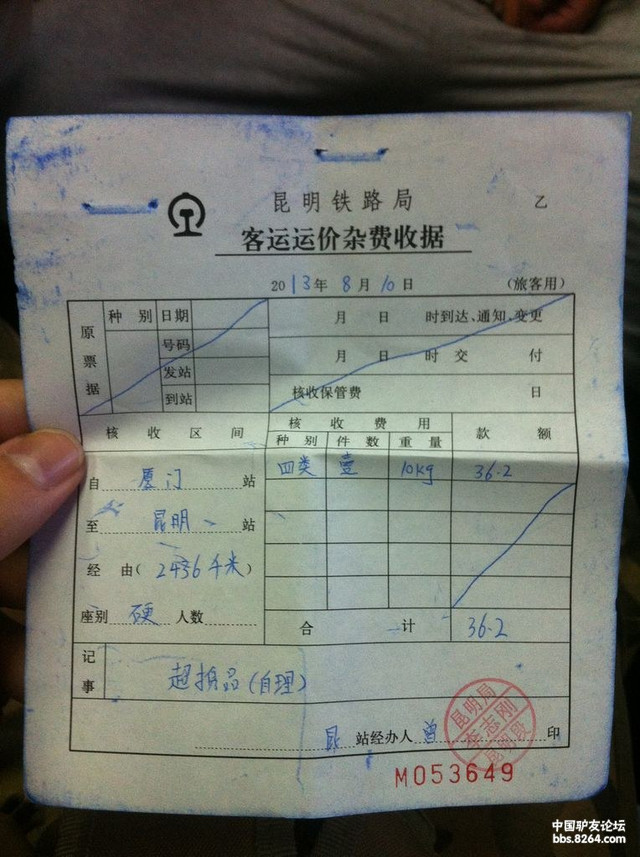 昆明铁路局 乙
客运运价杂费收据
2013年8月10日 (旅客用)
原票据 种别 日期 月 日 时到达、通知、变更
号码 月 日 时交付
发站
到站 核收保管费 日
核收区间 核收费用 款额
种别 件数 重量
自 厦门 站 四类 壹 10kg 36.2
至 昆明 站
经由(2436千米)
座别 硬 人数 合计 36.2
记事 超携品(自理)
昆 站经办人 曾 印
昆明局
M053649
中国驴友论坛
bbs.8264.com